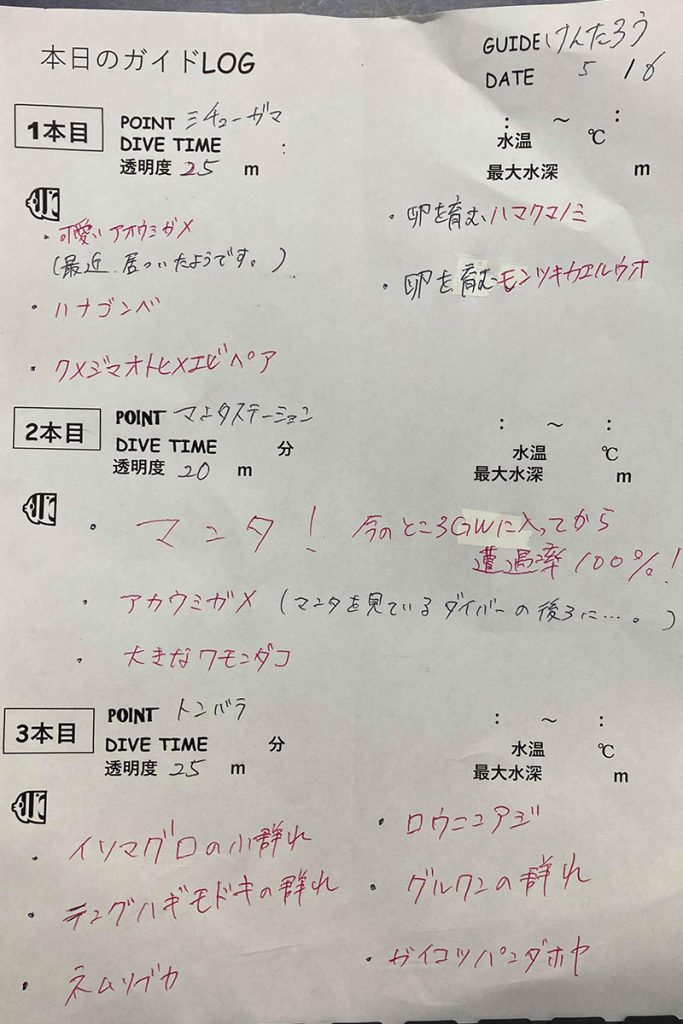 本日のガイドLOG
GUIDE けんたろう
DATE 5 16
1本目
POINT ミチューガマ
DIVE TIME :
透明度 25 m
: ～ :
水温 ℃
最大水深 m
・可愛いアオウミガメ
(最近、居ついたようです。)
・ハナゴンベ
・クメジマオトヒメエビペア
・卵を育むハマクマノミ
・卵を育むモンツキカエルウオ
2本目
POINT マンタステーション
DIVE TIME 分
透明度 20 m
: ～ :
水温 ℃
最大水深 m
・マンタ! 今のところGWに入ってから
遭遇率100%!
・アカウミガメ (マンタを見ているダイバーの後ろに…。)
・大きなワモンダコ
3本目
POINT トンバラ
DIVE TIME 分
透明度 25 m
: ～ :
水温 ℃
最大水深 m
・イソマグロの小群れ
・テングハギモドキの群れ
・ネムリブカ
・ロウニンアジ
・グルクンの群れ
・ガイコツパンダホヤ